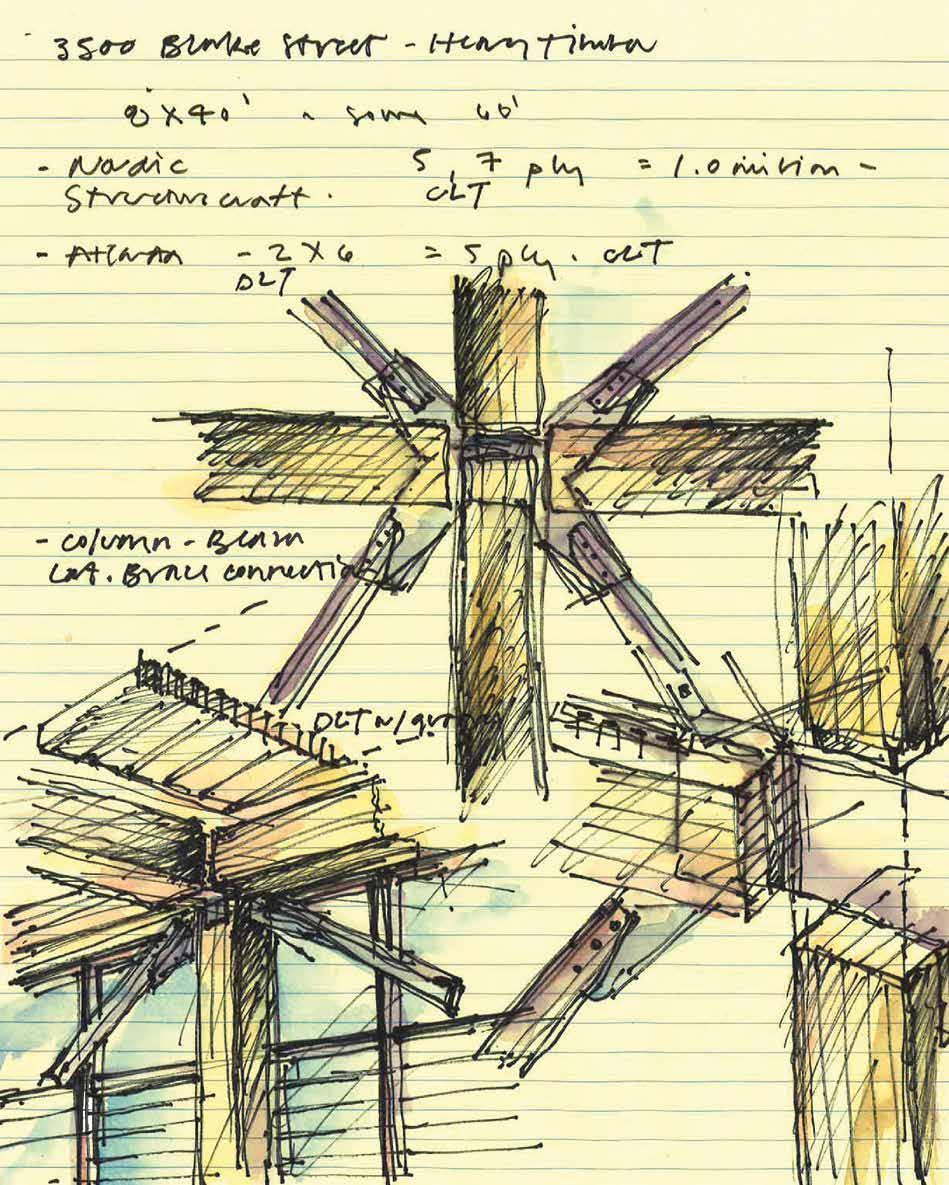 3500 Blake Street - Heavy Timber
8' x 40' ~ some 60'
- Nordic 5, 7 ply = 1.0 million -
Structurecraft. CLT
- Atlanta - 2 x 6 = 5 ply. CLT
DLT
- Column - Beam
Lat. Brace connection
DLT w/